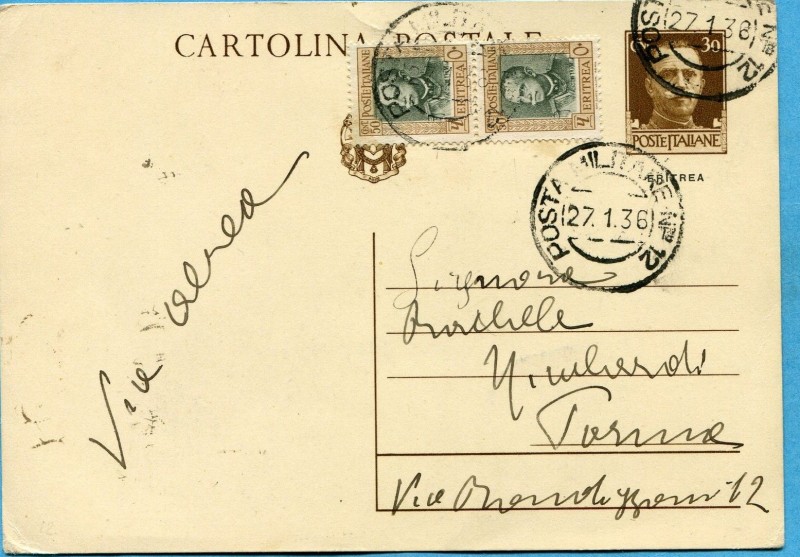 CARTOLINA POSTALE
POSTE ITALIANE
50
ERITREA
POSTE ITALIANE
50
ERITREA
30
POSTE ITALIANE
ERITREA
POSTA MILITARE Nº 12
27.1.36
POSTA MILITARE Nº 12
27.1.36
Via aerea
Signora
Rachele
Parma
Via 12